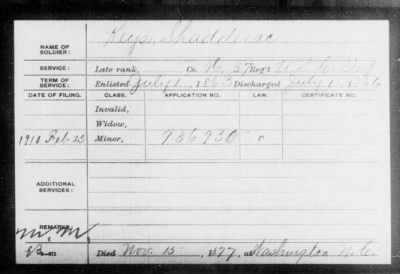 NAME OF SOLDIER: Keys, Shadderac
SERVICE: Late rank, Co. H, 37 Reg't U.S.C.
TERM OF SERVICE: Enlisted July 1, 1863 Discharged July 1, 1866
DATE OF FILING. CLASS. APPLICATION NO. LAW. CERTIFICATE NO.
Invalid,
Widow,
1910 Feb. 23 Minor, 936930 C
ADDITIONAL SERVICES:
REMARKS:
M. M.
Died Nov. 15, 1877, at Washington N.C.